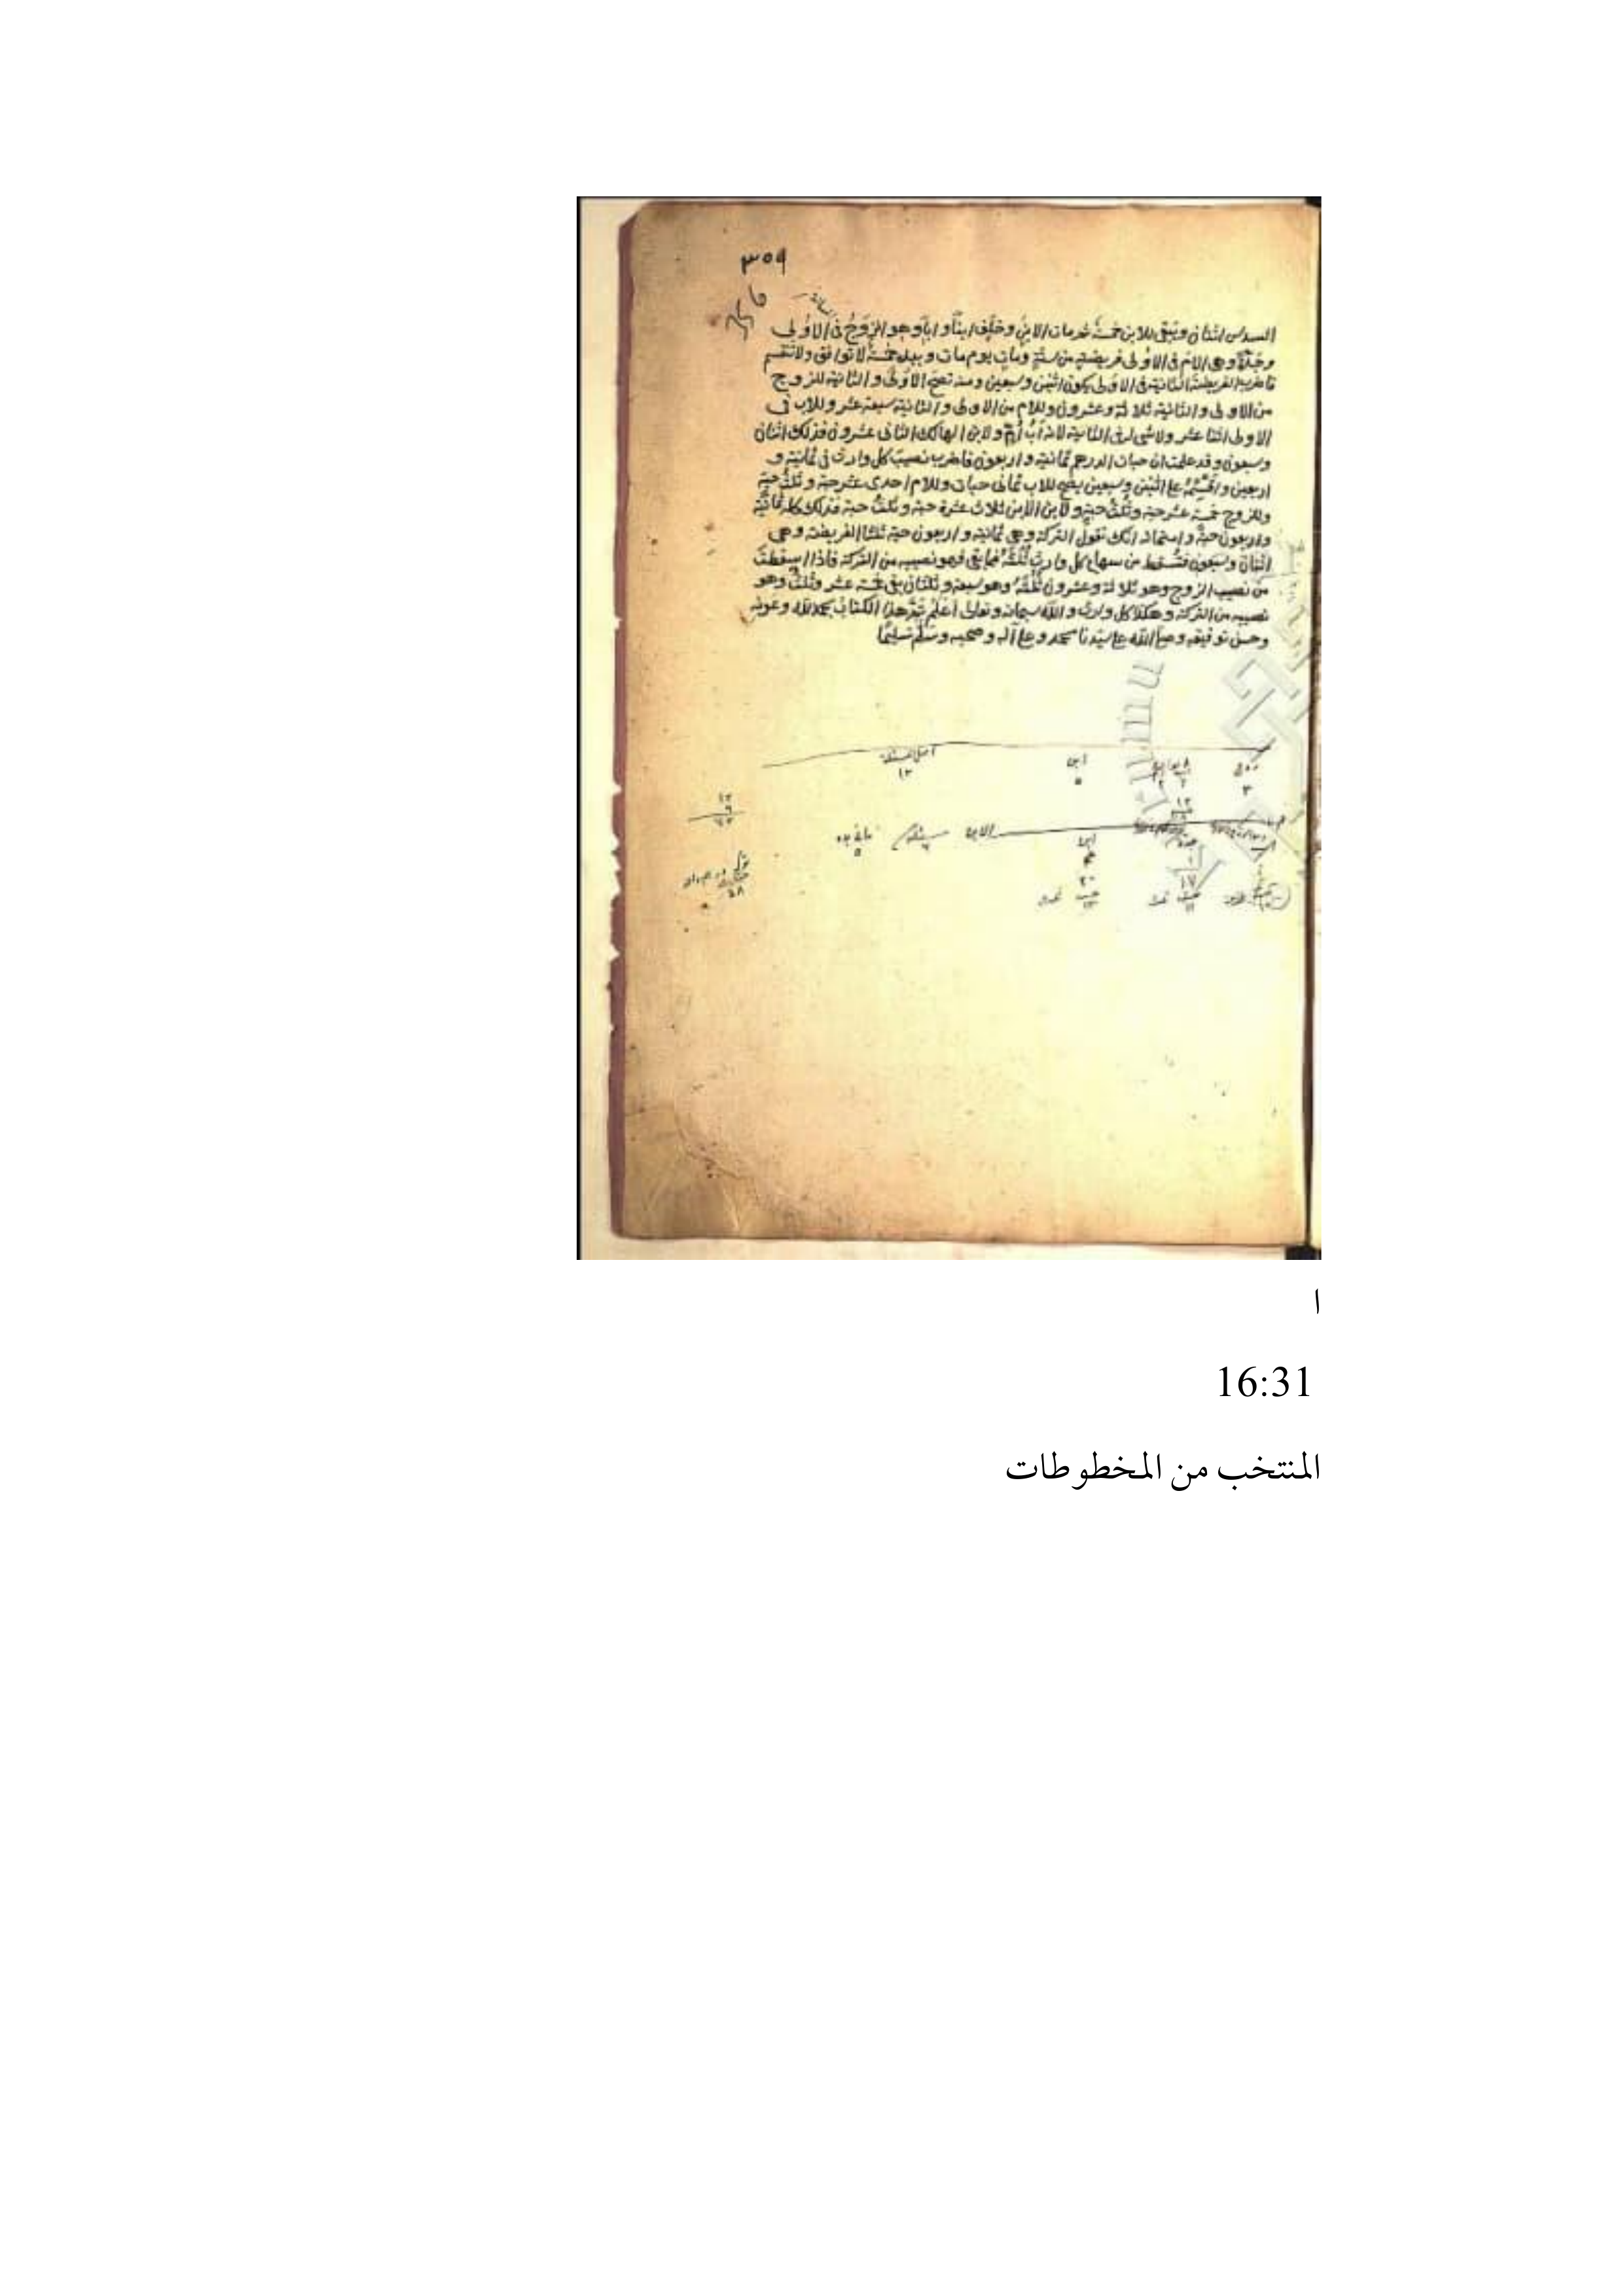 ٣٥٩
السدس اثنان ويبقى للابن خمسة ثم مات الابن وخلف ابنا وابا وهو الزوج في الاولى
وجدة وهي الام في الاولى فريضته من ستة ومات يوم مات وبيده خمسة لا توافق ولا تنقسم
فاضرب الفريضة الثانية في الاولى يكون اثنين وسبعين ومنه تصح الاولى والثانية للزوج
من الاولى والثانية ثلاثة وعشرون وللام من الاولى والثانية سبعة عشر وللاب في
الاولى اثنا عشر ولا شي له في الثانية لانه اب ام ولابن الهالك الثاني عشرون فذلك اثنان
وسبعون وقد علمت ان حبات الدرهم ثمانية واربعون فاضرب نصيب كل وارث في ثمانية و
اربعين واقسمه على اثنين وسبعين يصح للاب ثماني حبات وللام احدى عشر حبة وثلث حبة
وللزوج خمسة عشر حبة وثلث حبة ولابن الابن ثلاث عشرة حبة وثلث حبة فذلك كله ثمانية
واربعون حبة وامتحانه انك تقول التركة وهي ثمانية واربعون حبة ثلثا الفريضة وهي
اثنان وسبعون فتسقط من سهام كل وارث ثلثه فما بقي فهو نصيبه من التركة فاذا اسقطت
من نصيب الزوج وهو ثلاثة وعشرون ثلثه وهو سبعة وثلثان بقي خمسة عشر وثلث وهو
نصيبه من التركة وهكذا كل وارث والله سبحانه وتعالى اعلم تم هذا الكتاب بحمد الله وعونه
وحسن توفيقه وصلى الله على سيدنا محمد وعلى آله وصحبه وسلم تسليما
زوج ابن اصل المسئلة
٣ ٥ ١٢
ا
16:31
المنتخب من المخطوطات